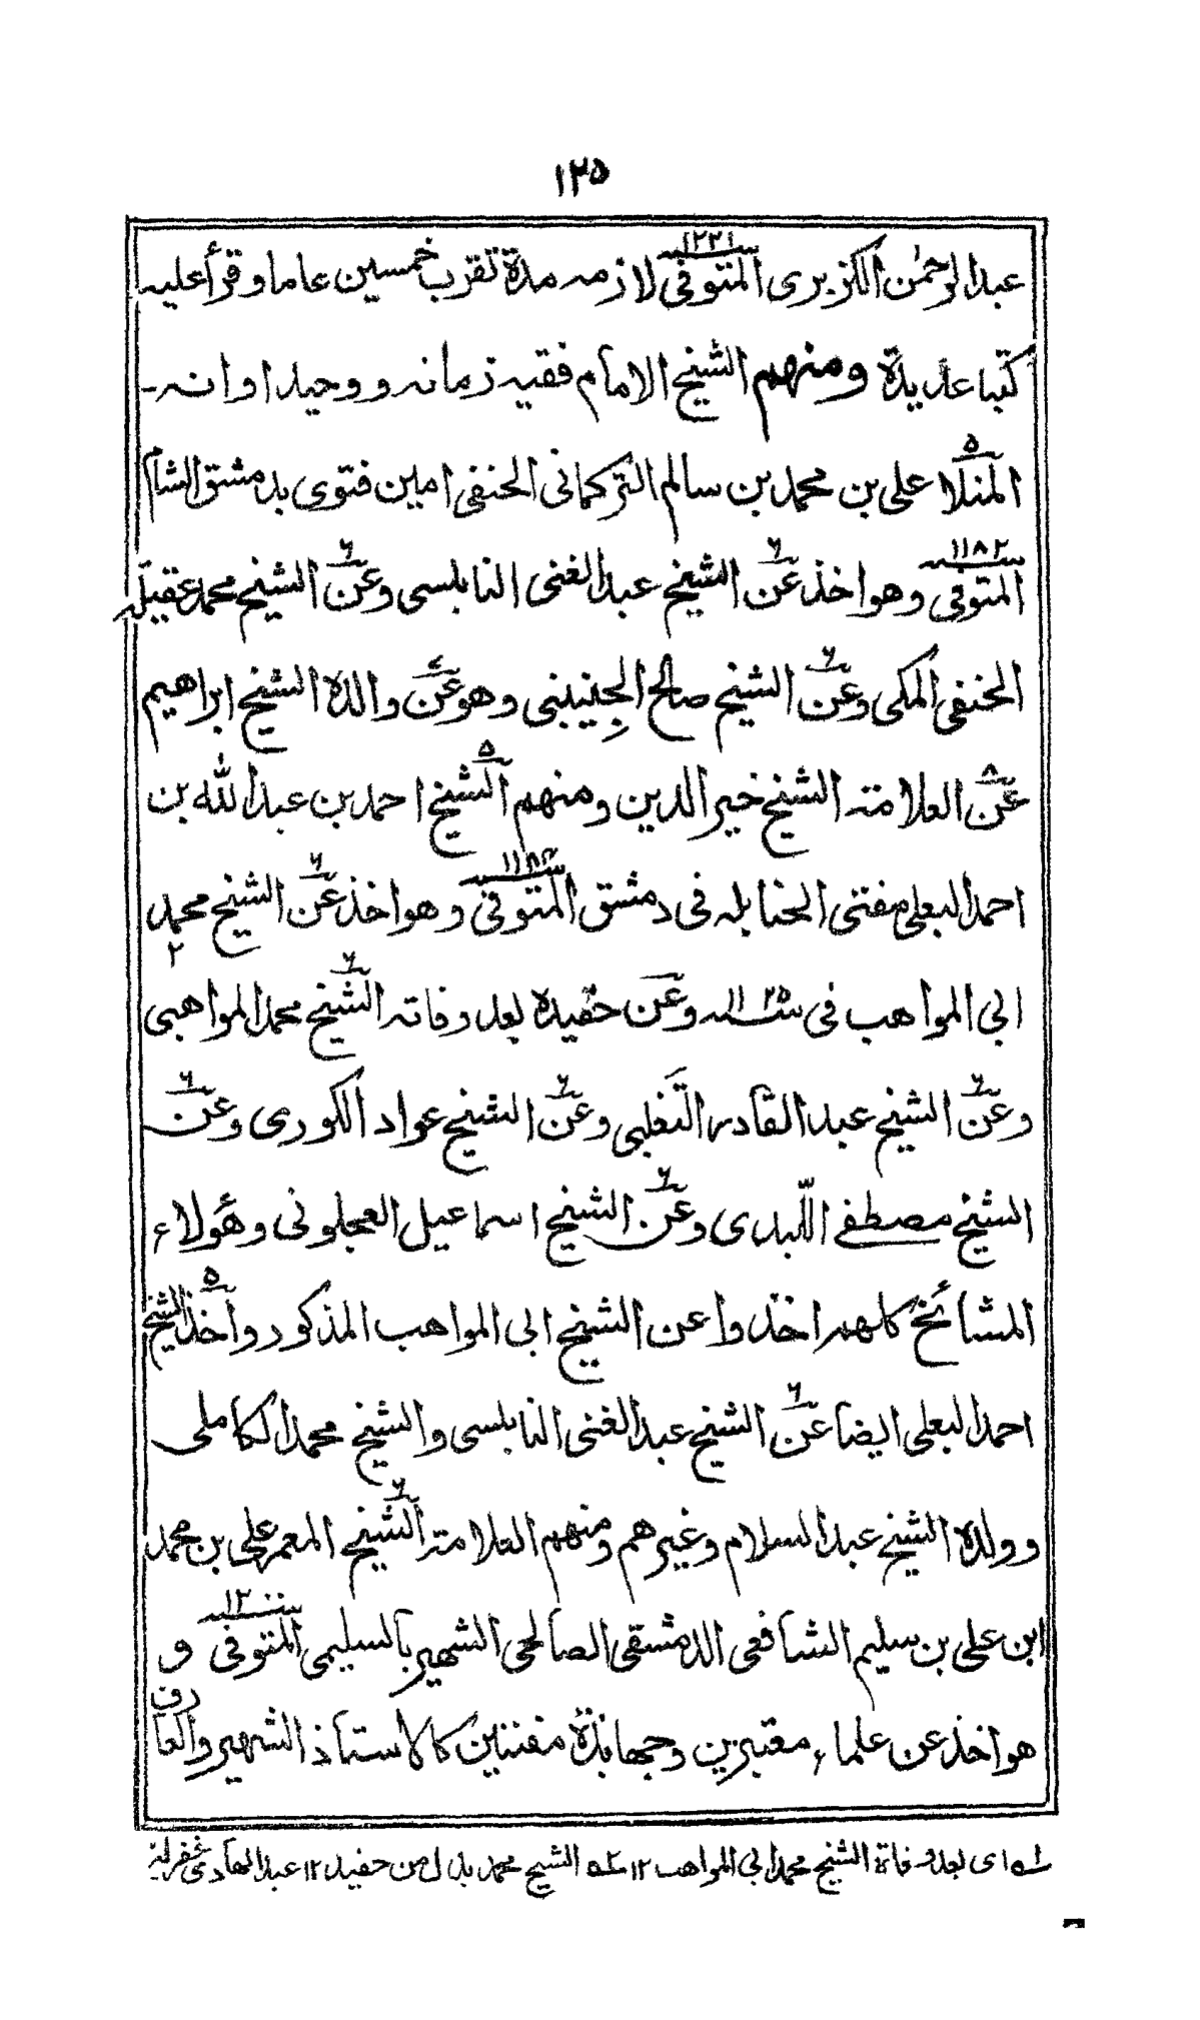 ١٢٥
عبدالرحمٰن الكزبرى المتوفى سنة ١٢٢١ لازمه مدة تقرب خمسين عاما وقرأ عليه
كتبا عديدة ومنهم الشيخ الامام فقيه زمانه ووحيد اوانه۔
المنلا ٥ على بن محمد بن سالم التركمانى الحنفى امين فتوى بدمشق الشام
المتوفى سنة ١١٨٢ وهو اخذ عن ٦ الشيخ عبدالغنى النابلسى وعن ٦ الشيخ محمد عقيله
الحنفى المكى وعن ٦ الشيخ صالح الجِنينينى وهو عن ٧ والده الشيخ ابراهيم
عن ٨ العلامة الشيخ خير الدين ومنهم ٥ الشيخ احمد بن عبدالله بن
احمد البعلى مفتى الحنابله فى دمشق المتوفى سنة ١١٨٩ وهو اخذ عن ٦ الشيخ محمد ٢
ابى المواهب فى سنة ١١٢٥ وعن حفيده بعد وفاته ٦ الشيخ محمد المواهبى
وعن ٦ الشيخ عبد القادر التغلبى وعن ٦ الشيخ عواد الكورى وعن ٦
الشيخ مصطفے اللّبدى وعن ٦ الشيخ اسماعيل العجلونى وهؤلاء
المشائخ كلهم اخذوا عن الشيخ ابى المواهب المذكور وأخذ ٥ الشيخ
احمد البعلى ايضا عن ٦ الشيخ عبدالغنى النابلسى والشيخ محمد الكاملى
وولده الشيخ عبدالسلام وغيرهم ومنهم العلامة ٦ الشيخ المعمر على بن محمد
ابن على بن سليم الشافعى الدمشقى الصالحى الشهير بالسليمى المتوفى سنة ١٢٠٠ و
هو اخذ عن علماء معتبرين وجهابذة مفننين كالاستاذ الشهير والعارف
له اى بعد وفاة الشيخ محمد ابى المواهب ١٢ ٢ه الشيخ محمد بدل من حفيد ١٢ عبدالهادى غفرله